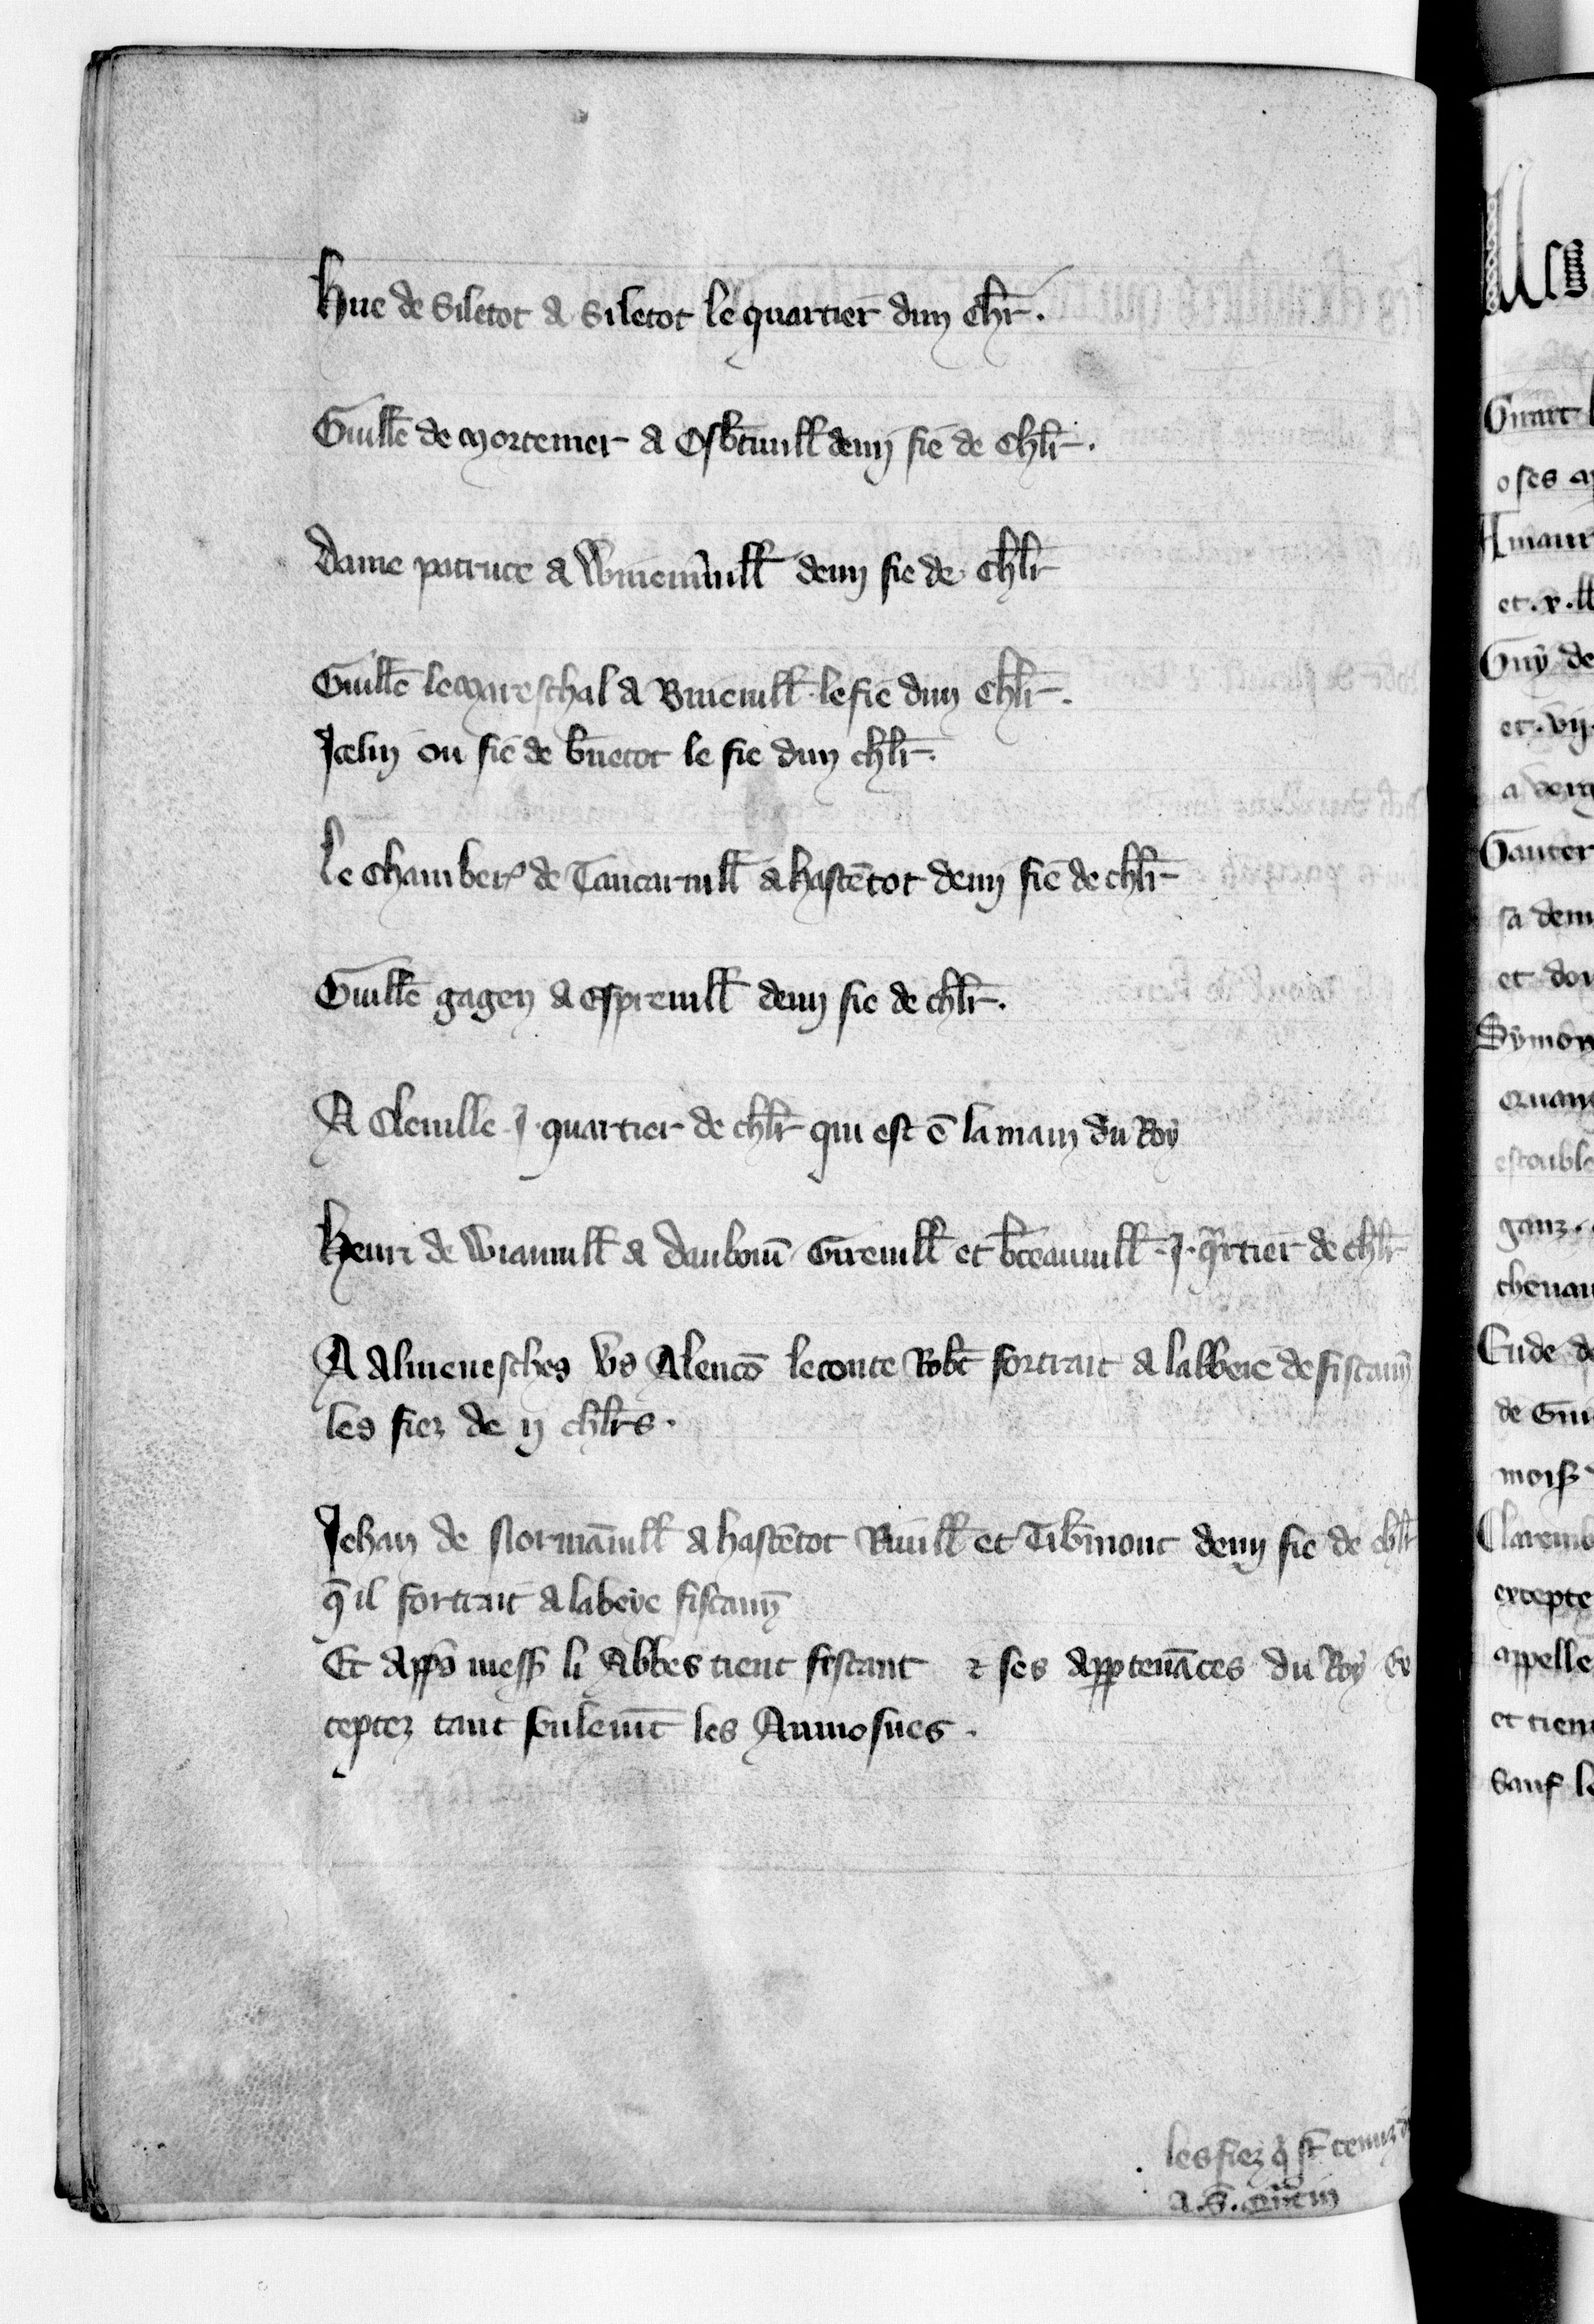 Hue de Siletot a Siletot le quartier dun chlr̄.
Guillē de Mortemer a Osb̄tiuill̄ demi fie de Chlr̄.
Dame patrice a demi fie de Chlr̄
Guillē le Mareschal a Buieuill̄ le fie dun Chlr̄.
Jcelui ou fie de b̄netot le fie dun chlr̄.
Le Chamber̾ de Tancaruill̄ a hastētot demi fie de chlr̄
Guillē gagen a Espreuill̄ demi fie de chlr̄.
A Cleuille .j. quartier de chlr̄ qui est ē la main du Roy
Henri de Wiauuill̄ a Greuill̄ et .j. qͣrtier de chlr̄
A Almenesches v̄s Alencō le conte Rob̄t fortrait a labbeie de fiscam̄
les fiez de ij chlr̄s.
Jehan de Normāuill̄ a hastētot et Tib̄mont demi fie de chlr̄
q̄ il fortrait a labeye fiscam̄
Et app̄s mess̄ li Abbes tient fiscant ⁊ ses apptenāces du Roy ex
ceptez tant seulem̄t les Aumosnes.
les fiez q̄ sт̄ tenuz
a .S. Q̄ntin
Guart
o ses
Amaur
et .x. ll
Guy de
et .vij.
a
Gauter
sa dem
et don
Symon
estouble
Eude de
de Gui
Claremb
excepte
appelle
et tien
Sauf le